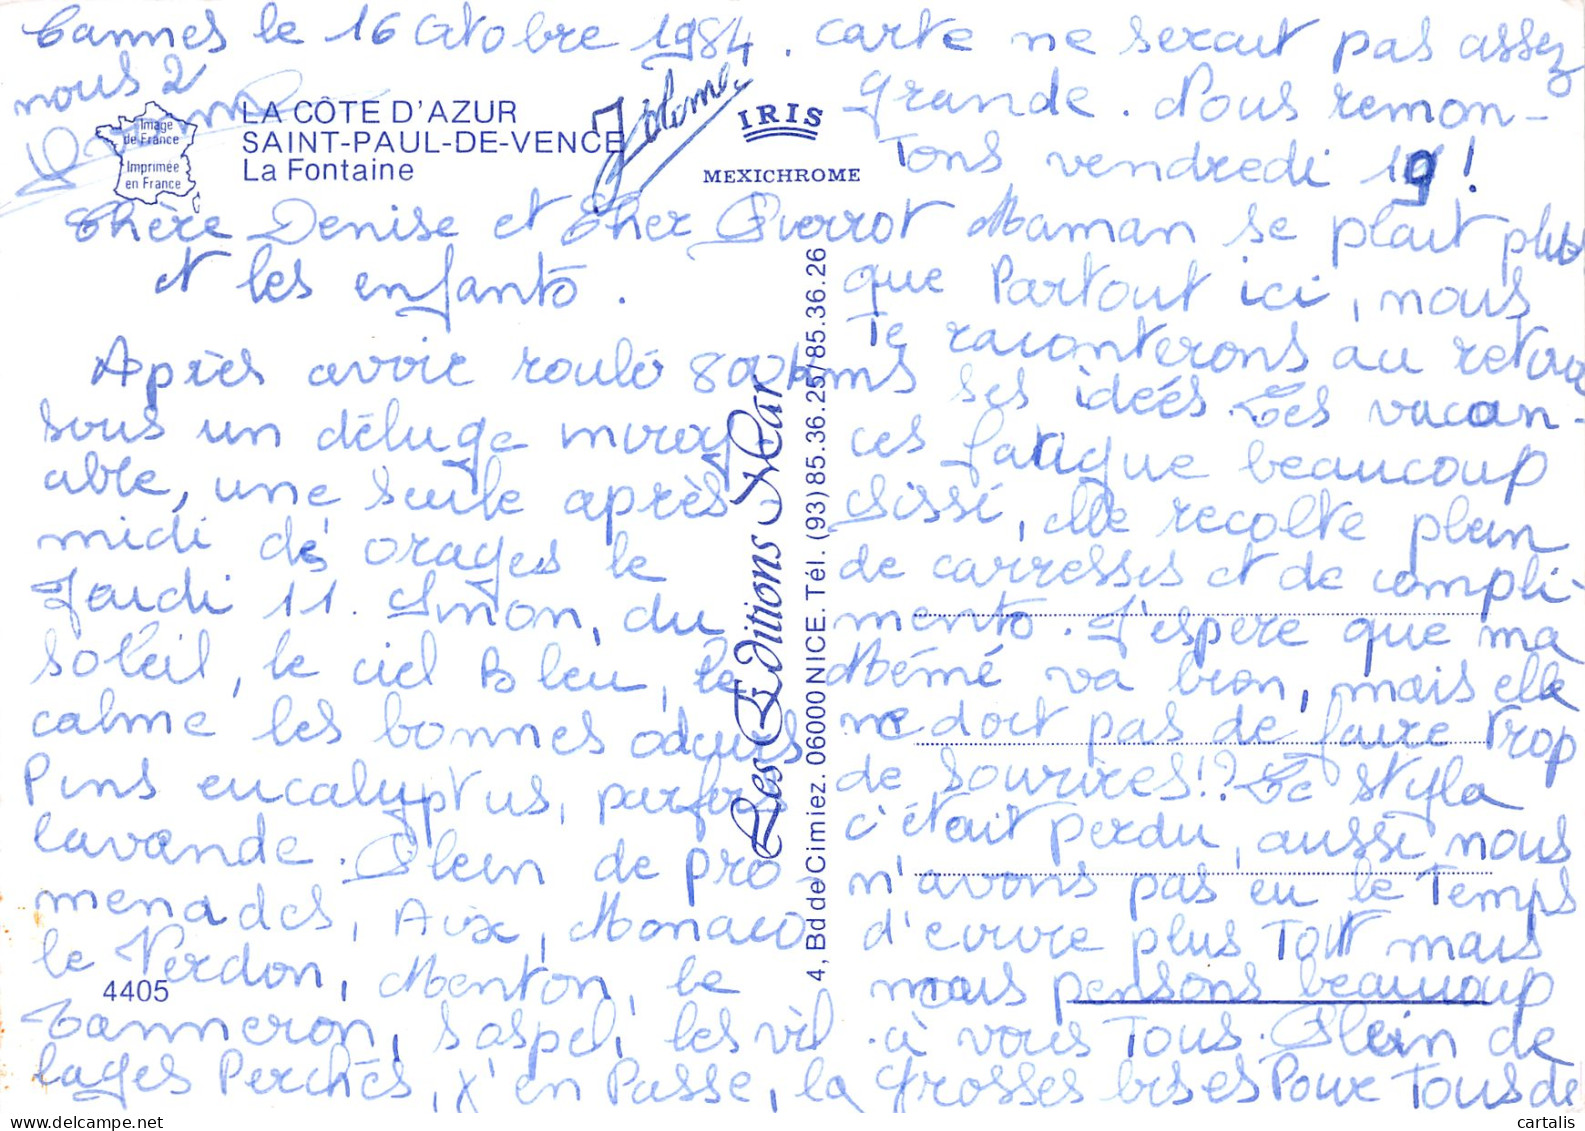 Cannes le 16 Octobre 1984.
nous 2
Jérôme
LA CÔTE D'AZUR
SAINT-PAUL-DE-VENCE
La Fontaine
Image
de France
Imprimée
en France
IRIS
MEXICHROME
Chère Denise et Cher Pierrot
et les enfants.
Après avoir roulé 800 kms
sous un déluge incroy
able, une seule après-
midi dés orages le
Jeudi 11. Sinon, du
soleil, le ciel Bleu, le
calme les bonnes odeurs
Pins eucalyptus, parfois
lavande. Plein de pro
menades, Aix, Monaco
le Verdon, Menton, le
Tanneron, Sospel, les vil
lages Perchés, j'en Passe, la
4405
Les Editions Mar
4, Bd de Cimiez. 06000 NICE. Tél. (93) 85.36.25/85.36.26
carte ne serait pas assez
grande. Nous remon-
tons vendredi 19!
Maman se plait plus
que Partout ici, nous
te raconterons au retour
ses idées. Les vacan-
ces fatigue beaucoup
Sissi, elle recolte plein
de carresses et de compli-
ments. J'espère que ma
Mémé va bien, mais elle
ne doit pas de faire trop
de sourires!? Le stylo
c'était perdu, aussi nous
n'avons pas eu le temps
d'ecrire plus tôt mais
nous pensons beaucoup
à vous tous. Plein de
grosses bises Pour Tous de
cartalis